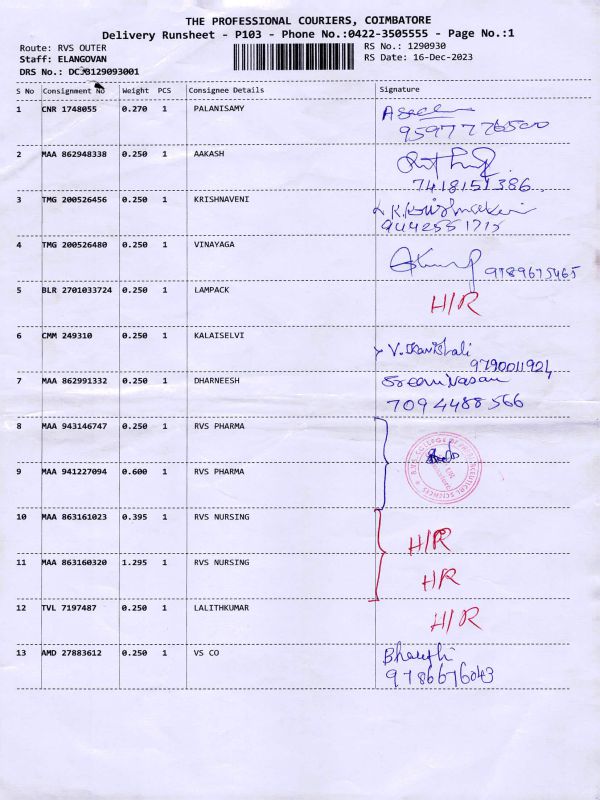 THE PROFESSIONAL COURIERS, COIMBATORE
Delivery Runsheet - P103 - Phone No.:0422-3505555 - Page No.:1
Route: RVS OUTER
RS No.: 1290930
Staff: ELANGOVAN
RS Date: 16-Dec-2023
DRS No.: DCJ8129093001
S No Consignment No Weight PCS Consignee Details Signature
1 CNR 1748055 0.270 1 PALANISAMY
9597776500
2 MAA 862948338 0.250 1 AAKASH
7418151386
3 TMG 200526456 0.250 1 KRISHNAVENI
9442551715
4 TMG 200526480 0.250 1 VINAYAGA
9789675465
5 BLR 2701033724 0.250 1 LAMPACK H/R
6 CMM 249310 0.250 1 KALAISELVI
9790011924
7 MAA 862991332 0.250 1 DHARNEESH Sreenivasan
7094488566
8 MAA 943146747 0.250 1 RVS PHARMA
9 MAA 941227094 0.600 1 RVS PHARMA
10 MAA 863161023 0.395 1 RVS NURSING H/R
11 MAA 863160320 1.295 1 RVS NURSING H/R
12 TVL 7197487 0.250 1 LALITHKUMAR H/R
13 AMD 27883612 0.250 1 VS CO
9786676043